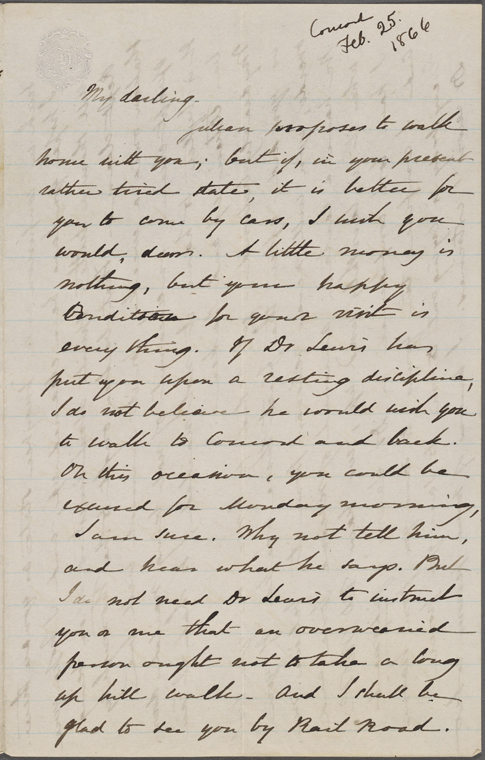 Concord
Feb. 25.
1866
My darling.
Julian proposes to walk
home with you; but if, in your present
rather tired state, it is better for
you to come by cars, I wish you
would, dear. A little money is
nothing, but your happy
Condition for your visit is
every thing. If Dr Lewis has
put you upon a resting discipline,
I do not believe he would wish you
to walk to Concord and back.
On this occasion, you could be
excused for Monday morning,
I am sure. Why not tell him,
and hear what he says. But
I do not need Dr Lewis to instruct
you or me that an overwearied
person ought not to take a long
up hill walk - And I shall be
glad to see you by Rail Road.